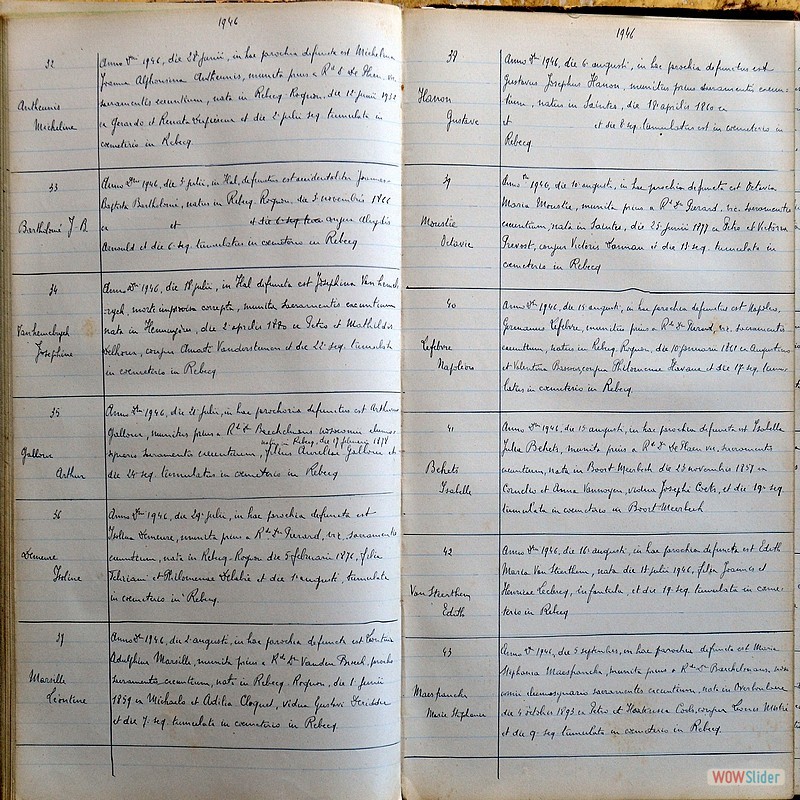 1946
32
Antheunis
Micheline
Anno Dni 1946, die 28 junii, in hac parochia defuncta est Michelina
Joanna Alphonsina Antheunis, munita prius a Rdo D De Thaen vic.
sacramentis exeuntium, nata in Rebecq Rognon, die 12 junii 1932
ex Gerardo et Renata et die 2 julii seq. tumulata in
cœmeterio in Rebecq
33
Bartholomé J B
Anno Dno 1946, die 3 julii, in Hal, defunctus est accidentaliter Joannes-
Baptista Bartholomé, natus in Rebecq Rognon, die 5 novembris 1866
ex et et die 6 seq conjux Aloysiæ
Arnould et die 6 seq. tumulatus in cœmeterio in Rebecq
34
Van hemelryck
Joséphine
Anno Dno 1946, die 18 julii, in Hal defuncta est Josephina Van hemel
ryck, morte improvisa correpta, munita sacramentis exeuntium
nata in Hennuyères, die 2 aprilis 1880 ex Petro et Mathilde
Delhoux, conjux Ernesti Vandersteenen et die 22 seq. tumulata
in cœmeterio in Rebecq
35
Galloux
Arthur
Anno Dni 1946, die 21 julii, in hac parochia defunctus est Arthurus
Galloux, munitus prius a Rdo D Bueckelmans
natus in Rebecq, die 17 januarii 1874
sacramentis exeuntium, filius Aureliae Galloux et
die 24 seq. tumulatus in cœmeterio in Rebecq
36
Demeure
Isoline
Anno Dni 1946, die 29 julii, in hac parochia defuncta est
Isolina Demeure, munita prius a Rdo Do Pierard, vic. sacramentis
exeuntium, nata in Rebecq-Rognon die 5 februarii 1876, filia
et Philomenae Delabie et die 1 augusti, tumulata
in cœmeterio in Rebecq.
37
Marseille
Léontine
Anno Dni 1946, die 2 augusti, in hac parochia defuncta est Leontina
Adulphina Marseille, munita prius a Rdo Dno Vanden Broeck, parocho
sacramentis exeuntium, nata in Rebecq-Rognon, die 1 junii
1859 ex Michaele et Adilia Cloquet, vidua Gustavi
et die 7 seq. tumulata in cœmeterio in Rebecq
1946
38
Hanon
Gustave
Anno Dni 1946, die 6 augusti, in hac parochia defunctus est
Gustavus Josephus Hanon, munitus prius sacramentis exeun-
tium, natus in Saintes, die 18 aprilis 1860 ex
et et die 8 seq. tumulatus est in cœmeterio in
Rebecq
39
Moustie
Octavie
Anno Dni 1946, die 10 augusti, in hac parochia defuncta est Octavia
Maria Moustie, munita prius a Rdo Do Pierard, vic. sacramentis
exeuntium, nata in Saintes, die 25 junii 1877 ex Petro et Victoria
Prevost, conjux Victoris et die 13 seq. tumulata in
cœmeterio in Rebecq
40
Lefebvre
Napoléon
Anno Dni 1946, die 15 augusti, in hac parochia defunctus est Napoleo,
Germanus Lefebvre, munitus prius a Rdo Do Pierard, vic. sacramentis
exeuntium, natus in Rebecq Rognon, die 10 januarii 1861 ex Augustino
et Valentina conjux Philomenae Havaux et die 17 seq. tumu-
latus in cœmeterio in Rebecq
41
Bekets
Isabelle
Anno Dni 1946, die 15 augusti, in hac parochia defuncta est Isabella
Julia Bekets, munita prius a Rdo D De Thaen vic. sacramentis
exeuntium, nata in Boost Meerbeek die 23 novembris 1857 ex
Cornelio et Anna Vannoyen, vidua Josephi Cools, et die 19 seq.
tumulata in cœmeterio in Boort-Meerbeek
42
Van Steerthem
Edith
Anno Dni 1946, die 16 augusti, in hac parochia defuncta est Edith
Maria Van Steerthem, nata die 15 julii 1946, filia Joannis et
Henricae Leclercq, infantula, et die 19 seq. tumulata in cœme-
terio in Rebecq
43
Maerspancha
Marie Stéphanie
Anno Dni 1946, die 5 septembris, in hac parochia defuncta est Maria
Stephania Maerspancha, munita prius a Rdo Do
sacramentis exeuntium, nata in
die 4 octobris 1893 ex Petro et conjux
et die 9 seq. tumulata in cœmeterio in Rebecq
WOWSlider